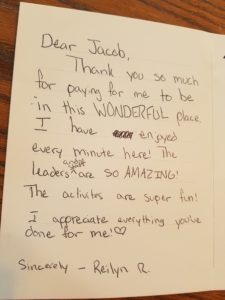 Dear Jacob,
Thank you so much
for paying for me to be
in this WONDERFUL place.
I have enjoyed
every minute here! The
leaders are SO AMAZING!
The activites are super fun!
I appreciate everything you've
done for me!♡
Sincerely - Reilyn R.